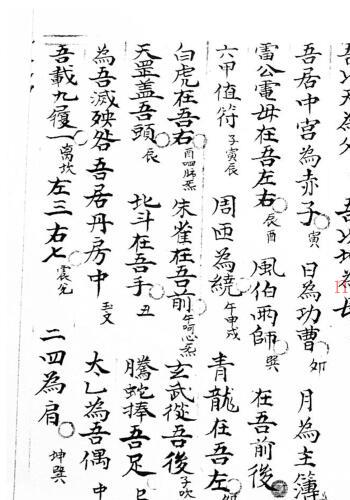 吾居中宮為赤子寅 日為功曹卯 月為主簿
雷公電母在吾左右辰酉 風伯雨師巽 在吾前後
六甲值符子寅辰 周匝為繞午申戌 青龍在吾左
白虎在吾右 朱雀在吾前 玄武從吾後
天罡盖吾頭辰 北斗在吾手丑 騰蛇捧吾足巳
為吾滅殃咎吾居丹房中 太乙為吾偶中
吾載九履一离坎 左三右七震兌 二四為肩坤巽